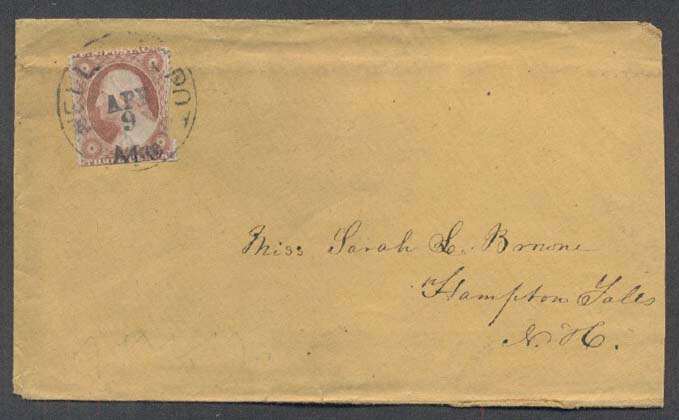 APR
9
Miss Sarah L. Browne
Hampton Falls
N. H.